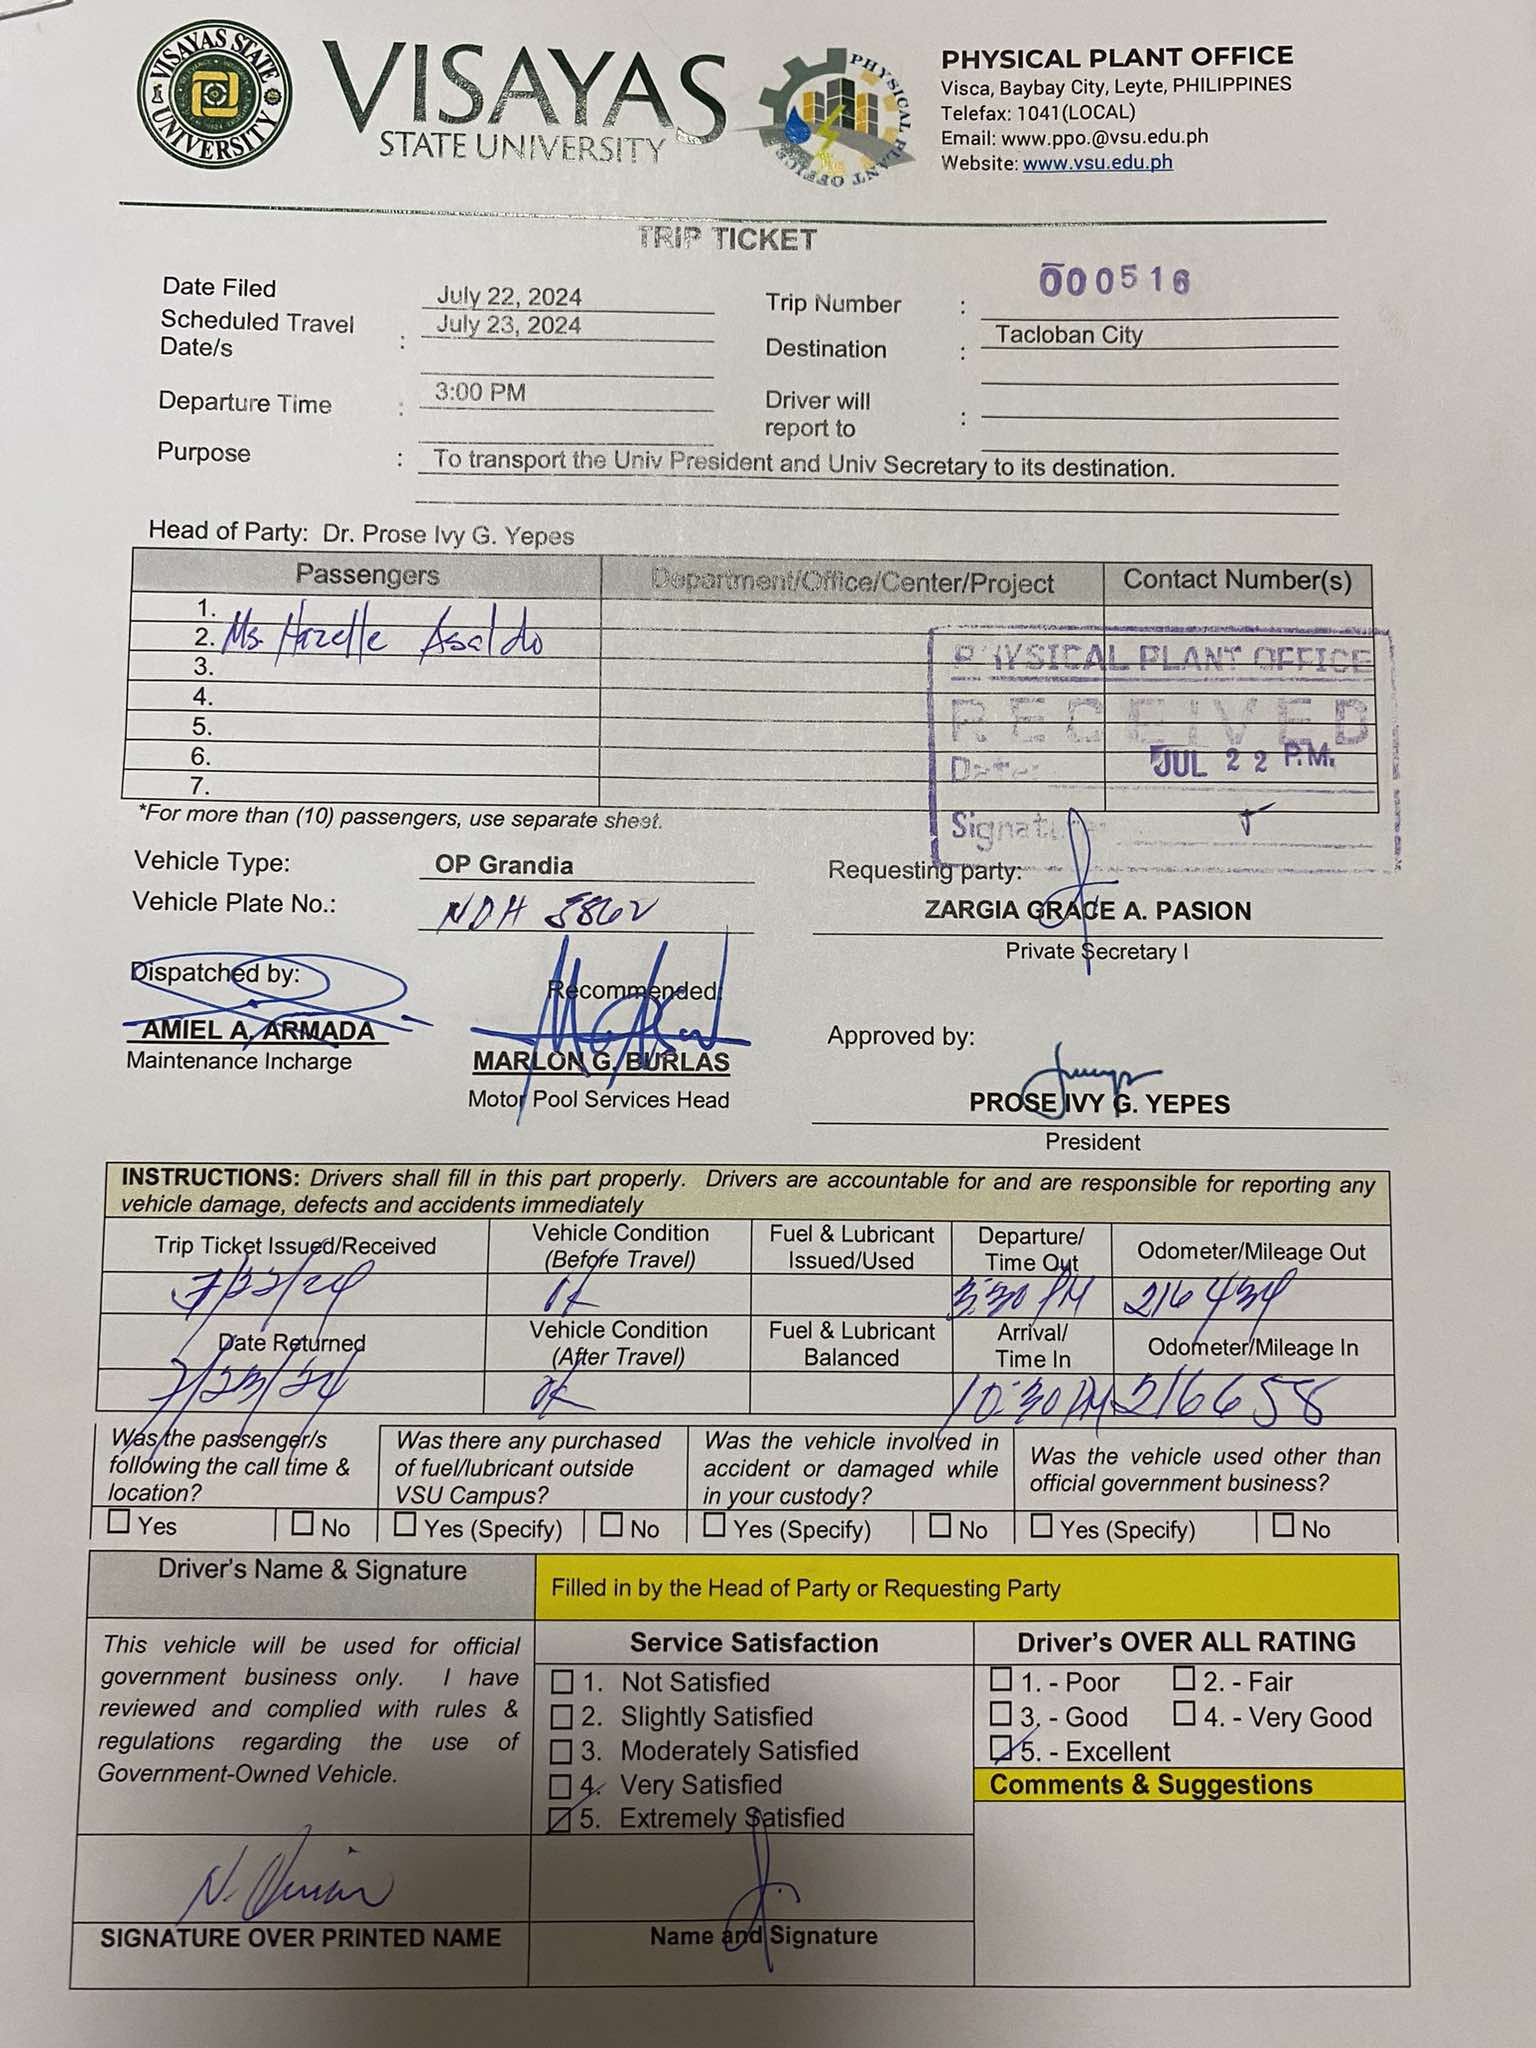 VISAYAS STATE UNIVERSITY
VISAYAS
STATE UNIVERSITY
PHYSICAL PLANT OFFICE
PHYSICAL PLANT OFFICE
Visca, Baybay City, Leyte, PHILIPPINES
Telefax: 1041(LOCAL)
Email: www.ppo.@vsu.edu.ph
Website: www.vsu.edu.ph
TRIP TICKET
Date Filed July 22, 2024 Trip Number : 000516
Scheduled Travel Date/s : July 23, 2024 Destination : Tacloban City
Departure Time : 3:00 PM Driver will report to :
Purpose : To transport the Univ President and Univ Secretary to its destination.
Head of Party: Dr. Prose Ivy G. Yepes
Passengers Department/Office/Center/Project Contact Number(s)
1.
2. Ms. Hazelle Asaldo
3.
4.
5.
6.
7.
PHYSICAL PLANT OFFICE
RECEIVED
Date: JUL 22 P.M.
Signature
*For more than (10) passengers, use separate sheet.
Vehicle Type: OP Grandia
Vehicle Plate No.: NDH 5862
Requesting party:
ZARGIA GRACE A. PASION
Private Secretary I
Dispatched by:
AMIEL A. ARMADA
Maintenance Incharge
Recommended:
MARLON G. BURLAS
Motor Pool Services Head
Approved by:
PROSE IVY G. YEPES
President
INSTRUCTIONS: Drivers shall fill in this part properly. Drivers are accountable for and are responsible for reporting any
vehicle damage, defects and accidents immediately
Trip Ticket Issued/Received Vehicle Condition (Before Travel) Fuel & Lubricant Issued/Used Departure/ Time Out Odometer/Mileage Out
7/22/24 ok 3:30 PM 216434
Date Returned Vehicle Condition (After Travel) Fuel & Lubricant Balanced Arrival/ Time In Odometer/Mileage In
7/23/24 ok 10:30 PM 216658
Was the passenger/s
following the call time &
location?
Yes No
Was there any purchased
of fuel/lubricant outside
VSU Campus?
Yes (Specify) No
Was the vehicle involved in
accident or damaged while
in your custody?
Yes (Specify) No
Was the vehicle used other than
official government business?
Yes (Specify) No
Driver's Name & Signature
This vehicle will be used for official
government business only. I have
reviewed and complied with rules &
regulations regarding the use of
Government-Owned Vehicle.
SIGNATURE OVER PRINTED NAME
Filled in by the Head of Party or Requesting Party
Service Satisfaction
1. Not Satisfied
2. Slightly Satisfied
3. Moderately Satisfied
4. Very Satisfied
5. Extremely Satisfied
Name and Signature
Driver's OVER ALL RATING
1. - Poor 2. - Fair
3. - Good 4. - Very Good
5. - Excellent
Comments & Suggestions